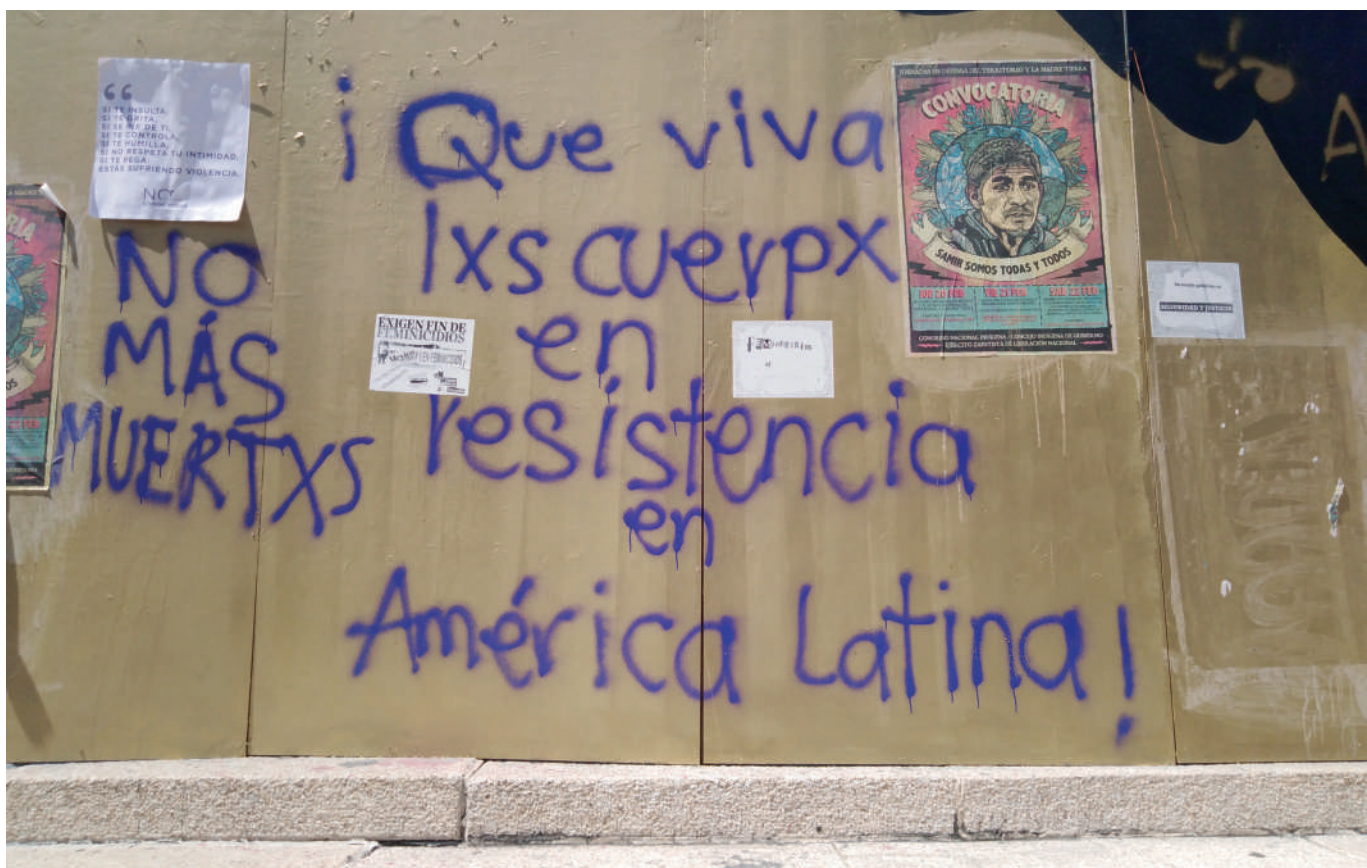 “
SI TE INSULTA,
SI TE GRITA,
SI SE RIE DE TI,
SI TE CONTROLA,
SI TE HUMILLA,
SI NO RESPETA TU INTIMIDAD,
SI TE PEGA:
ESTÁS SUFRIENDO VIOLENCIA.
NO
MÁS
MUERTXS
¡Que viva
lxs cuerpx
en
resistencia
en
América Latina!
EXIGEN FIN DE
FEMINICIDIOS
JORNADAS EN DEFENSA DEL TERRITORIO Y LA MADRE TIERRA
CONVOCATORIA
SAMIR SOMOS TODAS Y TODOS
CONGRESO NACIONAL INDÍGENA · CONCEJO INDÍGENA DE GOBIERNO
EJÉRCITO ZAPATISTA DE LIBERACIÓN NACIONAL
SEGURIDAD Y JUSTICIA